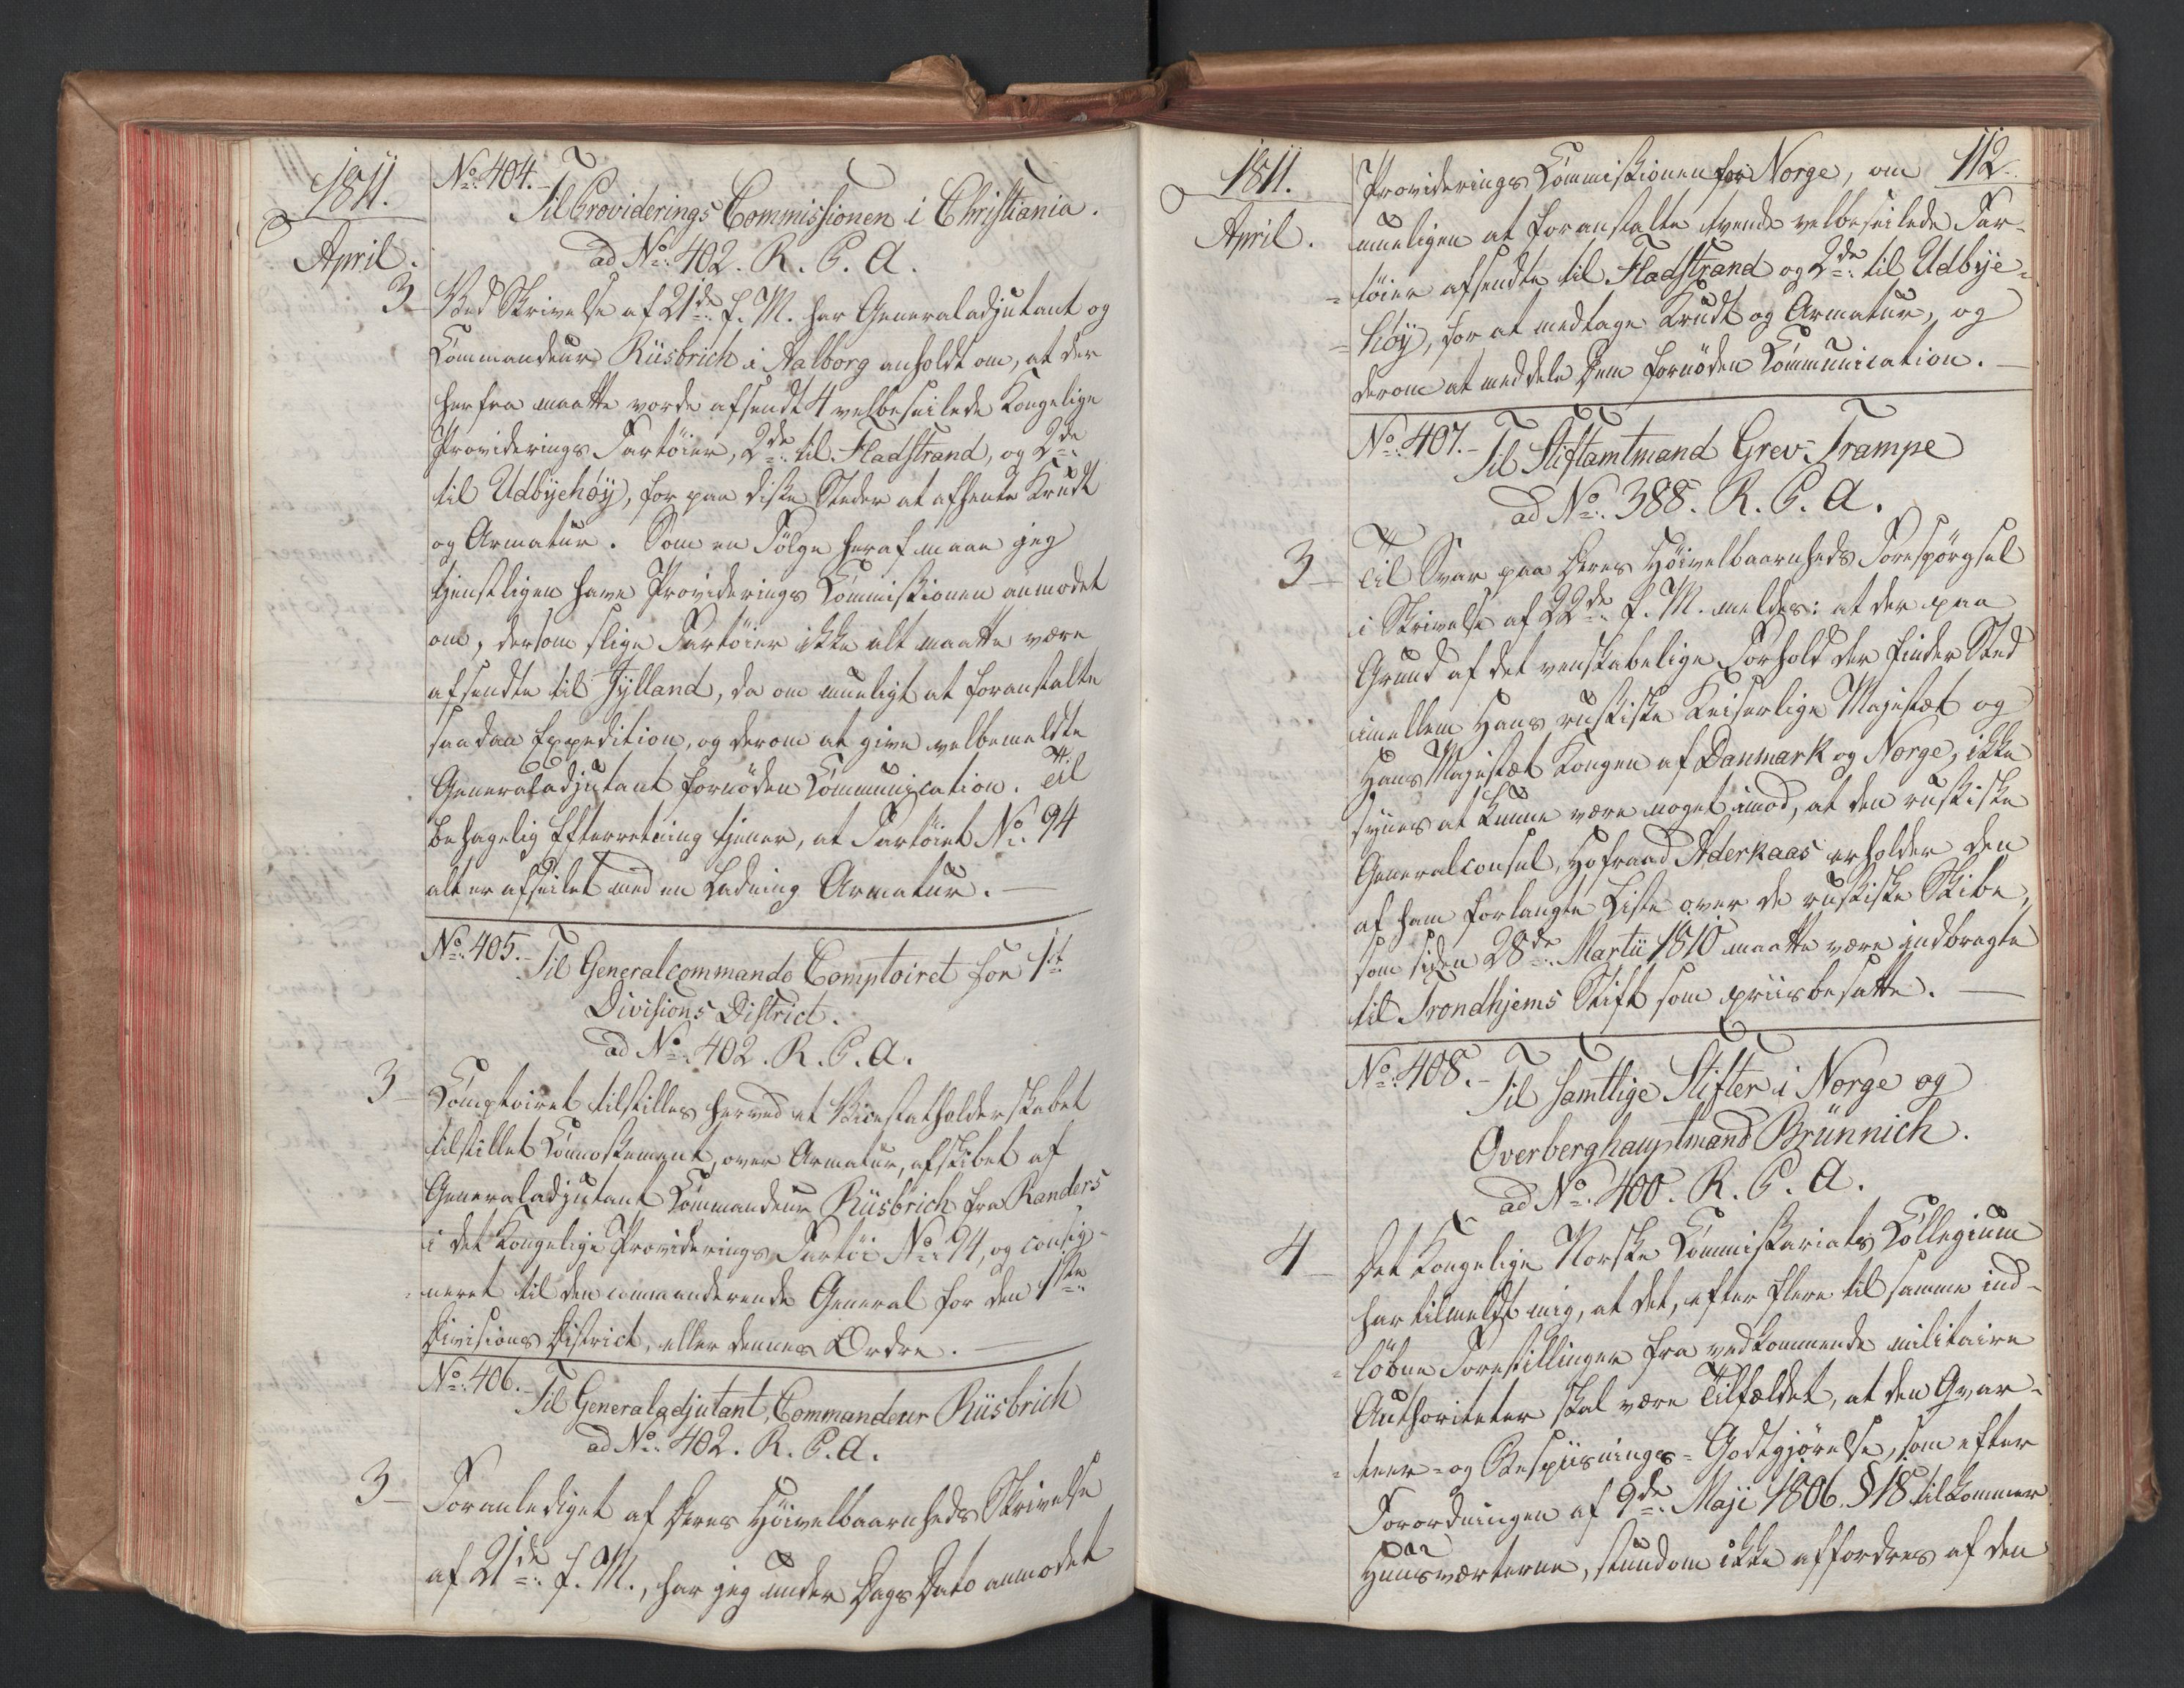 1811.
April.
No. 404.
Til Providerings Commissionen i Christiania.
ad No. 402. R. C. A.
3 Ved Skrivelse af 21de f. M. har Generaladjutant og
Commandeur Rüsbrich i Aalborg anholdt om, at der
herfra maatte vorde afsendt 4 velbeseilede Kongelige
Providerings Fartöier, 2de til Fladstrand, og 2de
til Udbÿehöÿ, for paa disse Steder at afhente Krudt
og Armatur. Som en Fölge heraf maae jeg
tjenstligen have Providerings Commissionen anmodet
om, dersom slige Fartöier ikke alt maatte være
afsendte til Jÿlland, da om mueligt at foranstalte
saadan Expedition, og derom at give velbemeldte
Generaladjutant fornöden Communication. Til
behagelig Efterretning tjener, at Fartöiet No. 94
alt er afseilet med en Ladning Armatur.
No. 405.
Til Generalcommando Comptoiret for 1ste
Divisions District.
ad No. 402. R. C. A.
3 Comptoiret tilstilles herved et Vicestatholderskabet
tilstillet Connossement, over Armatur, afskibet af
Generaladjutant Commandeur Rüsbrich fra Randers
i det Kongelige Providerings Fartöi No. 94, og consig-
neret til den commanderende General for den 1ste
Divisions District, eller dennes Ordre.
No. 406.
Til Generaladjutant, Commandeur Rüsbrich
ad No. 402. R. C. A.
3 Foranlediget af Deres Höivelbaarenheds Skrivelse
af 21de f. M., har jeg under Dags Dato anmodet
1811. 112.
April.
Providerings Commissionen for Norge, om
mueligen at foranstalte tvende velbeseilede Far-
töier afsendte til Fladstrand og 2de til Udbÿe-
höÿ, for at medtage Krudt og Armatur, og
derom at meddele Dem fornöden Communication.
No. 407.
Til Stiftamtmand Grev Trampe
ad No. 388. R. C. A.
3 Til Svar paa Deres Höivelbaarenheds Forespörgsel
i Skrivelse af 22de f. M. meldes: at der paa
Grund af det venskabelige Forhold der finder Sted
imellem Hans russiske Keiserlige Majestæt og
Hans Majestæt Kongen af Danmark og Norge, ikke
synes at kunne være noget imod, at den russiske
Generalconsul, Hofraad Aderkaas erholder den
af ham forlangte Liste over de russiske Skibe,
som siden 28de Martii 1810 maatte være indbragte
til Trondhjems Stift som priisbesatte.
No. 408.
Til samtlige Stifter i Norge og
Overberghauptmand Brünnich.
ad No. 400. R. C. A.
4 Det Kongelige Norske Commissariats Collegium
har tilmeldt mig, at det, efter flere til samme ind-
löbne Forestillinger fra vedkommende militaire
Authoriteter skal være Tilfældet, at den Qvar-
teer- og Bespiisnings-Godtgjörelse, som efter
Forordningen af 9de Maji 1806. § 18 tilkommer
Huusværterne, stundom ikke affordres af den